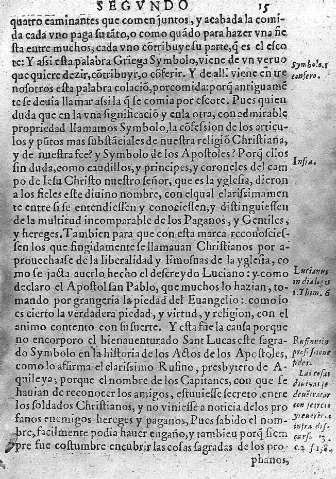 SEGVNDO 15
quatro caminantes que comen juntos, y acabada la comi-
da cada vno paga su tãto, o como quãdo para hazer vna fie
sta entre muchos, cada vno cõtribuye su parte, q̃ es el esco
te: Y assi esta palabra Griega Symbolo, viene de vn veruo
que quiere dezir, cõtribuyr, o cõferir. Y de alli viene en tre
nosotros esta palabra colaciõ, por comida: porq̃ antiguamẽ
te se deuia llamar assi la q̃ se comia por escote. Pues quien
duda que en la vna significaciõ y en la otra, con admirable
propriedad llamamos Symbolo, la cõfession de los articu-
los y pũtos mas substãciales de nuestra religiõ Christiana,
y de nuestra fee? y Symbolo de los Apostoles? Porq̃ ellos
sin duda, como caudillos, y principes, y coroneles del cam
po de Iesu Christo nuestro señor, que es la yglesia, dieron
a los fieles este diuino nombre, con el qual clarissimamen
te entre si se entendiessen y conociessen, y distinguiessen
de la multitud incomparable de los Paganos, y Gentiles,
y hereges. Tambien para que con esta marca reconoscies-
sen los que fingidamente se llamauan Christianos por a-
prouecharse de la liberalidad y limosnas de la yglesia, co-
mo se jacta auerlo hecho el descreydo Luciano: y como
declaro el Apostol san Pablo, que muchos lo hazian, to-
mando por grangeria la piedad del Euangelio: como lo
es cierto la verdadera piedad, y virtud, y religion, con el
animo contento con su suerte. Y esta fue la causa porque
no encorporo el bienauenturado Sant Lucas este sagra-
do Symbolo en la historia de los Actos de los Apostoles,
como lo affirma el clarissimo Rufino, presbytero de A-
quileya, porque el nombre de los Capitanes, con que se
hauian de reconocer los amigos, estuuiesse secreto entre
los soldados Christianos, y no viniesse a noticia delos pro
fanos enemigos hereges y paganos, Pues sabido el nom-
bre, facilmente podia hauer engaño, y tambien porq̃ siem
pre fue costumbre encubrir las cosas sagradas de los pro-
phanos,
Symbolo.s
confero.
Insia.
Lucianus
in dialogis
1. Thim. 6
Ruffinus
Las cosas